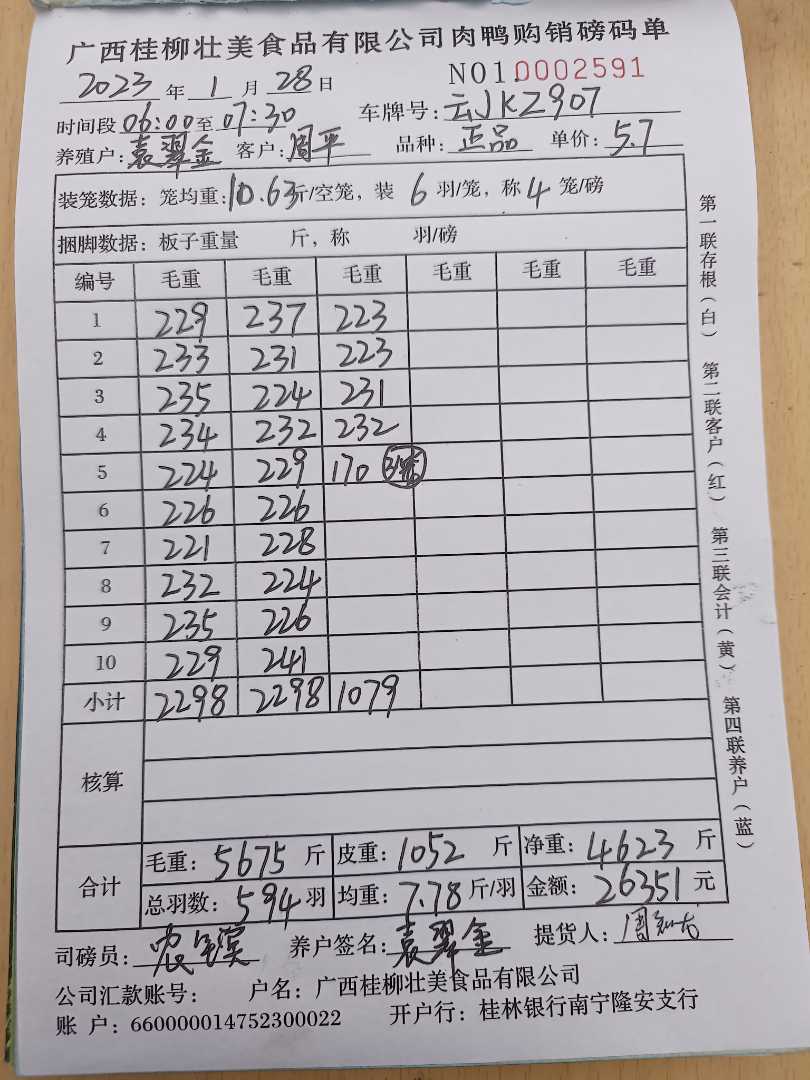 广西桂柳壮美食品有限公司肉鸭购销磅码单
2023 年 1 月 28 日 NO1 0002591
时间段 06:00 至 07:30 车牌号: 云JKZ907
养殖户: 袁翠金 客户: 周平 品种: 正品 单价: 5.7
装笼数据: 笼均重: 10.63 斤/空笼, 装 6 羽/笼, 称 4 笼/磅
捆脚数据: 板子重量 斤, 称 羽/磅
编号 毛重 毛重 毛重 毛重 毛重 毛重
1 229 237 223
2 233 231 223
3 235 224 231
4 234 232 232
5 224 229 170
6 226 226
7 221 228
8 232 224
9 235 226
10 229 241
小计 2298 2298 1079
核算
合计
毛重: 5675 斤 皮重: 1052 斤 净重: 4623 斤
总羽数: 594 羽 均重: 7.78 斤/羽 金额: 26351 元
司磅员: 养户签名: 袁翠金 提货人: 周
公司汇款账号: 户名: 广西桂柳壮美食品有限公司
账 户: 660000014752300022 开户行: 桂林银行南宁隆安支行
第一联存根(白) 第二联客户(红) 第三联会计(黄) 第四联养户(蓝)